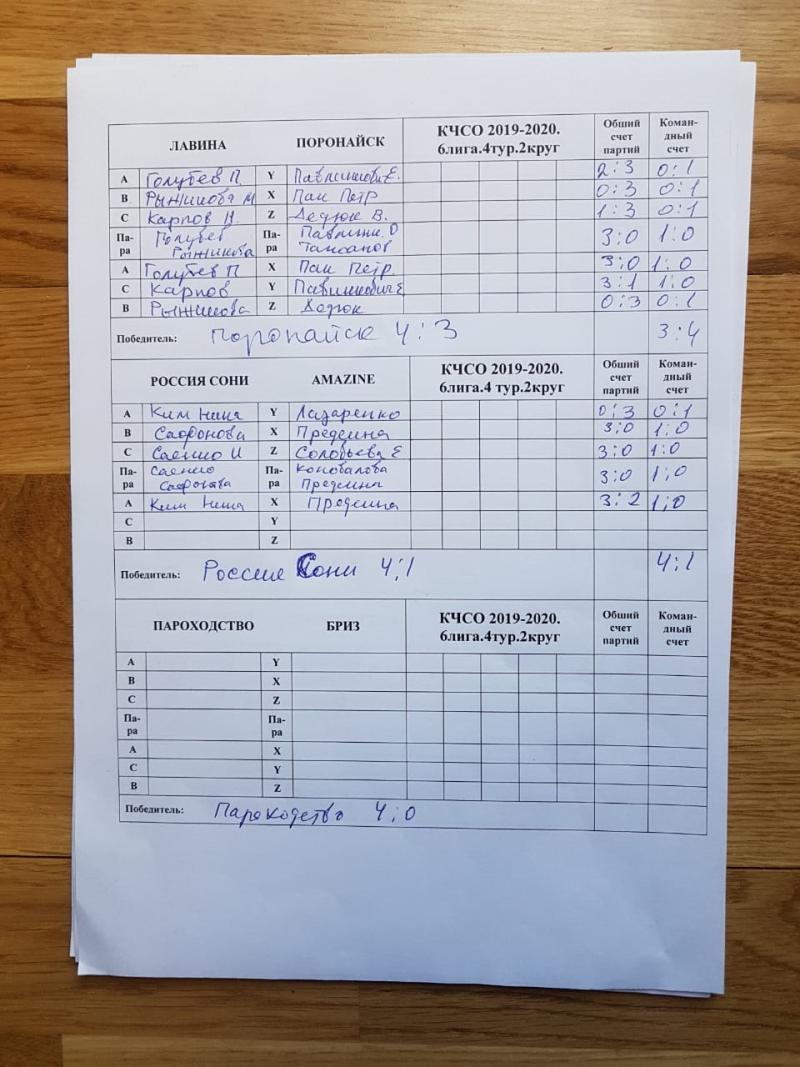 ЛАВИНА ПОРОНАЙСК КЧСО 2019-2020. 6лига.4тур.2круг Общий счет партий Коман-дный счет
A Голубев П Y Павлинкович Е. 2:3 0:1
B Рынникова М X Пак Петр 0:3 0:1
C Карпов И. Z Дедюк В. 1:3 0:1
Па-ра Голубев Па-ра 3:0 1:0
Рынникова
A Голубев П X Пак Петр 3:0 1:0
C Карпов Y 3:1 1:0
B Рынникова Z Дедюк 0:3 0:1
Победитель: Поронайск 4:3 3:4
РОССИЯ СОНИ AMAZINE КЧСО 2019-2020. 6лига.4 тур.2круг Общий счет партий Коман-дный счет
A Ким Нина Y Лазаренко 0:3 0:1
B Сафонова X Предеина 3:0 1:0
C Саенко И Z Соловьева Е 3:0 1:0
Па-ра Саенко Па-ра Коновалова 3:0 1:0
Сафонова Предеина
A Ким Нина X Предеина 3:2 1:0
C Y
B Z
Победитель: Россия Сони 4:1 4:1
ПАРОХОДСТВО БРИЗ КЧСО 2019-2020. 6лига.4тур.2круг Общий счет партий Коман-дный счет
A Y
B X
C Z
Па-ра Па-ра
A X
C Y
B Z
Победитель: Пароходство 4:0